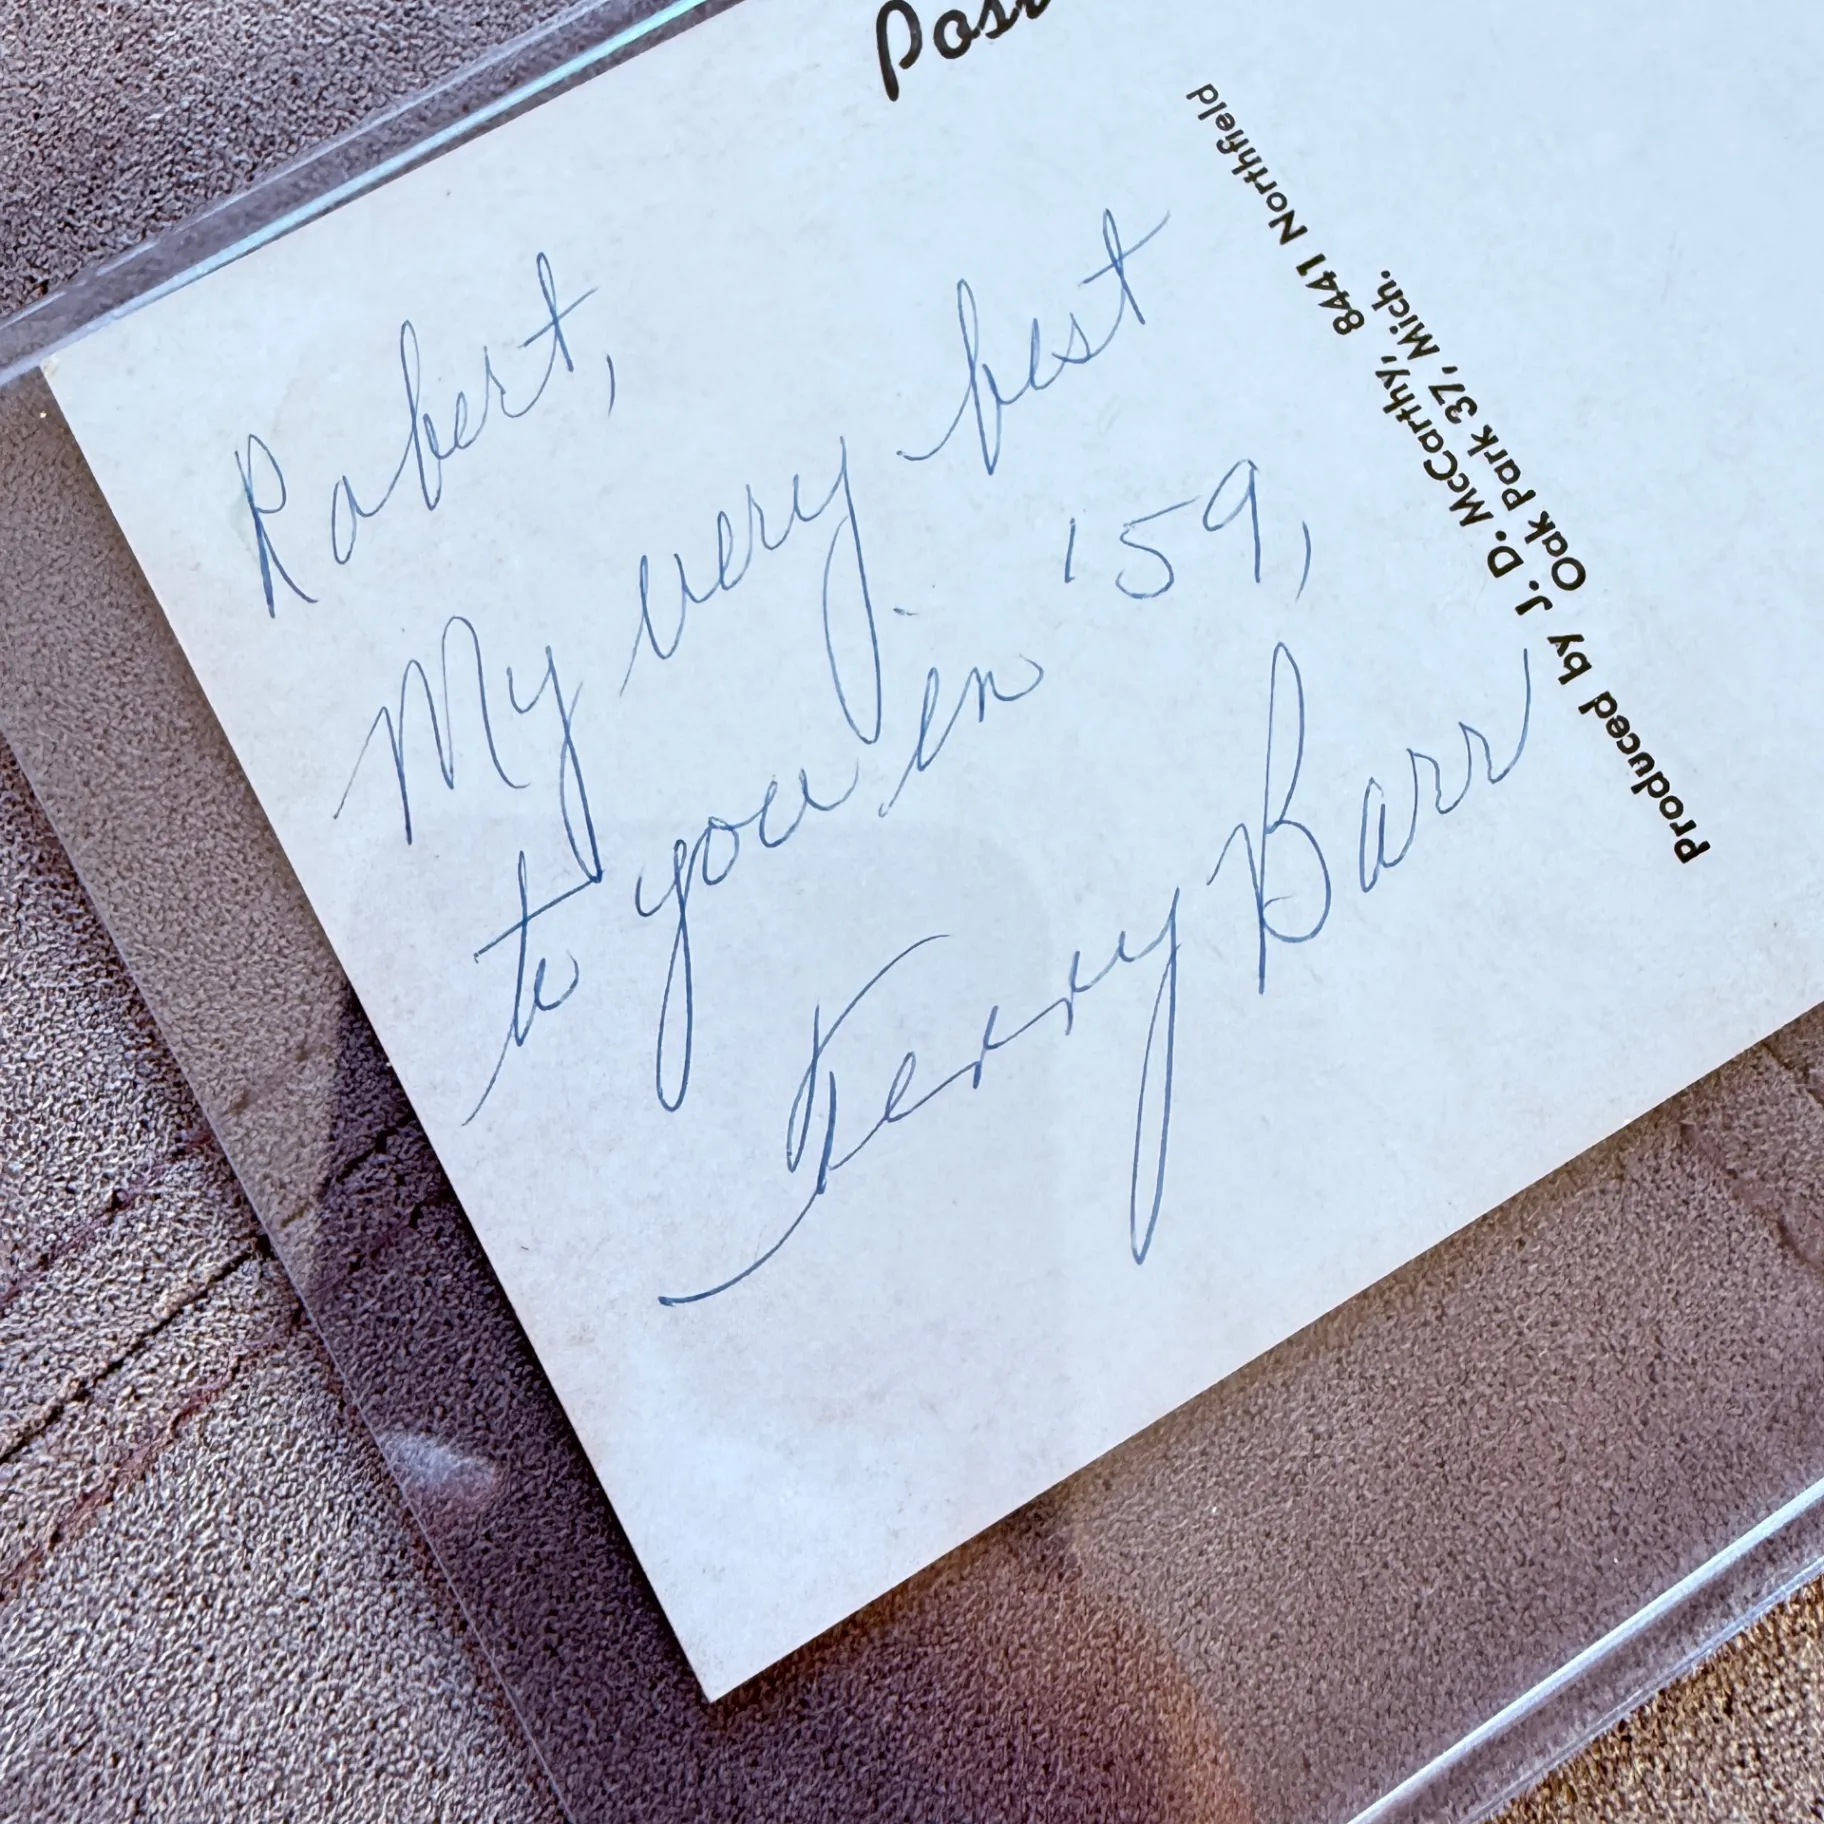 Robert,
My very best
to you in '59,
Terry Barr
Produced by J. D. McCarthy, 8441 Northfield
Oak Park 37, Mich.